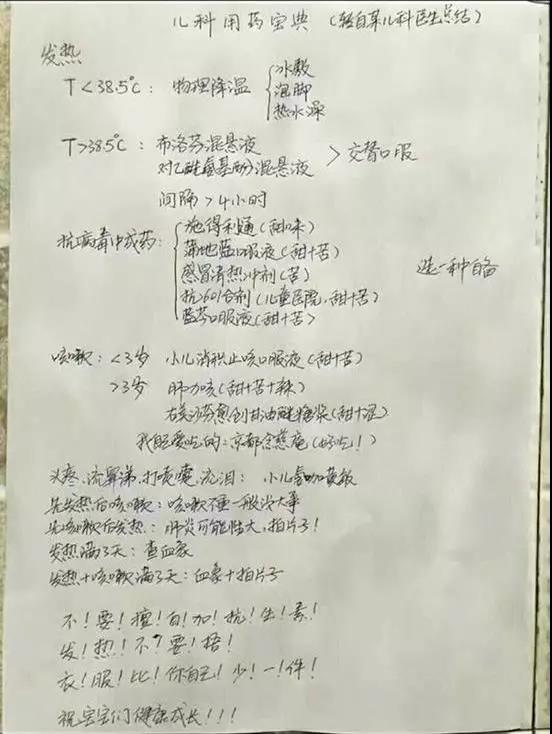 儿科用药宝典（转自某儿科医生总结）
发热
T＜38.5℃：物理降温｛冰敷
泡脚
热水澡
T＞38.5℃：布洛芬混悬液
对乙酰氨基酚混悬液 ＞交替口服
间隔＞4小时
抗病毒中成药：｛施得利通（甜口味）
蒲地蓝口服液（甜+苦）
感冒清热冲剂（苦）
抗601合剂（儿童医院，甜+苦）
蓝芩口服液（甜+苦＞
选一种自备
咳嗽：＜3岁 小儿消积止咳口服液（甜+苦）
＞3岁 肺力咳（甜+苦+辣）
右美沙芬愈创甘油醚糖浆（甜+涩）
我最爱吃的：京都念慈庵（好吃！）
头疼，流鼻涕，打喷嚏，流泪：小儿氨咖黄敏
先发热后咳嗽：咳嗽不重一般没大事
先咳嗽后发热：肺炎可能性大，拍片子！
发热满3天：查血象
发热+咳嗽满3天：血象+拍片子
不！要！擅！自！加！抗！生！素！
发！热！不！要！捂！
衣！服！比！你自己！少！一！件！
祝宝宝们健康成长！！！